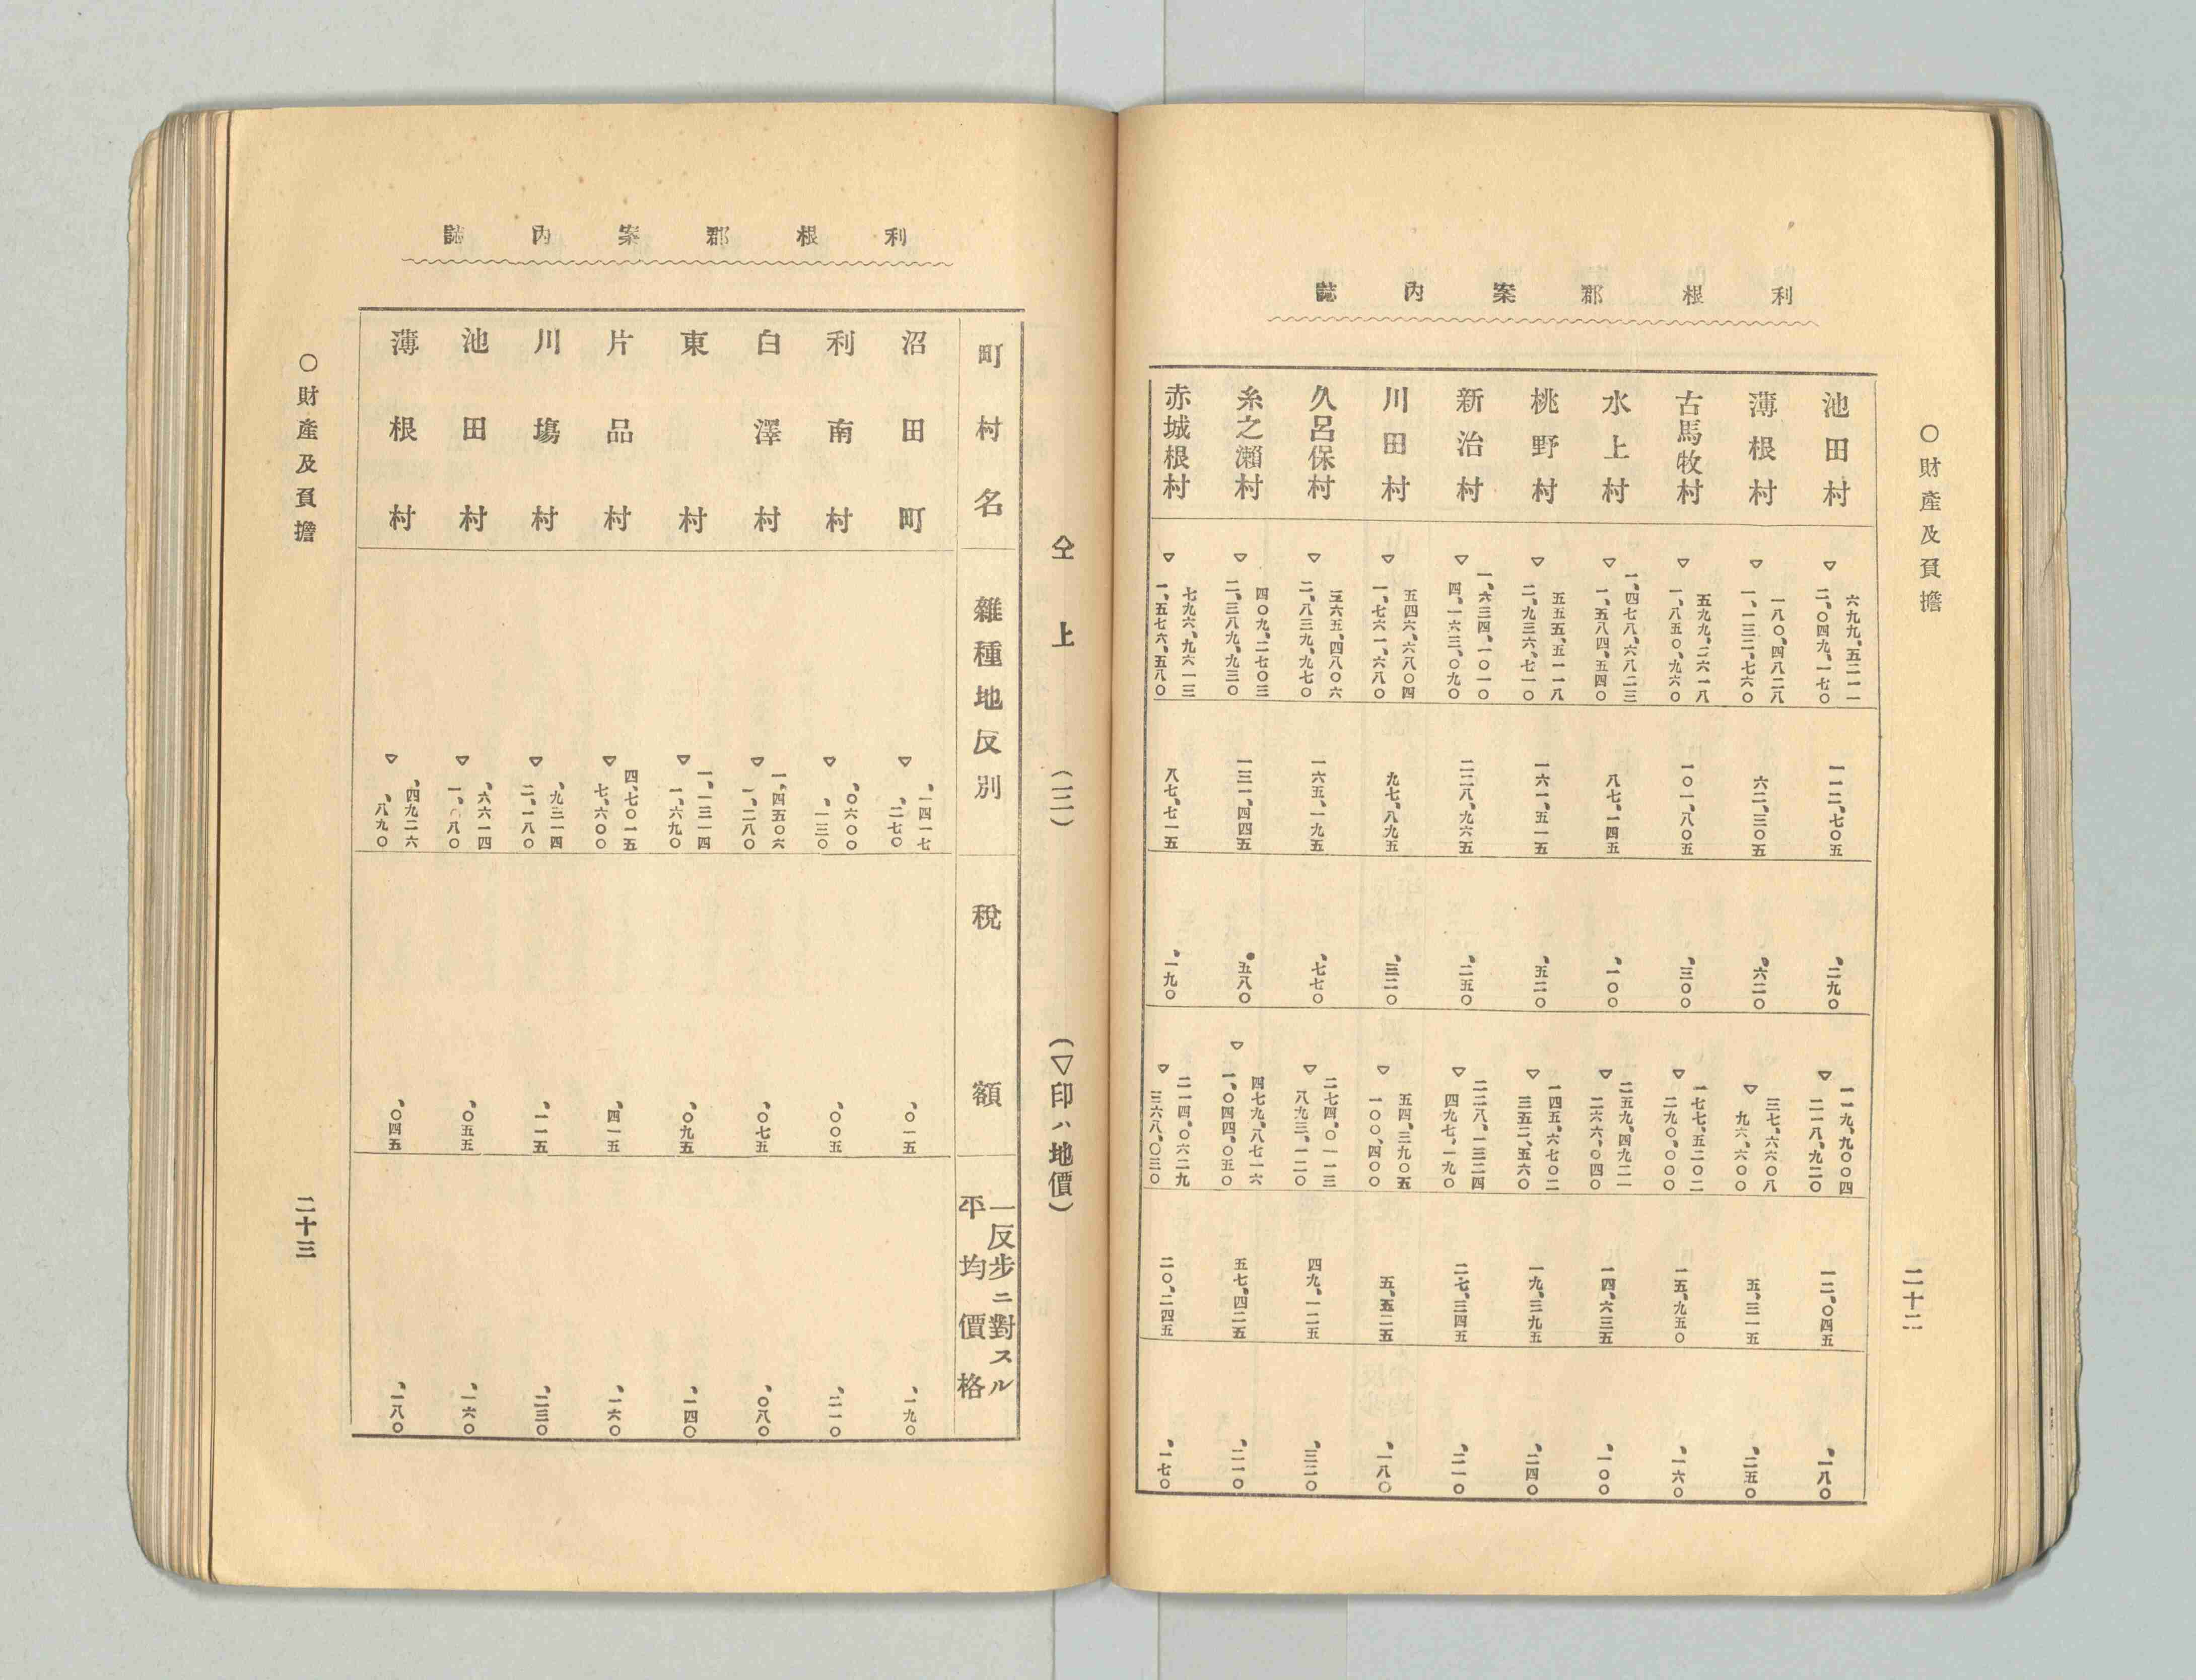 利根郡案內誌
○財產及負擔
二十二
池田村
六九九、五二一一
▽二、〇四九、一七〇
一一二、七〇五
、二九〇
一一九、九〇〇四
▽二一八、九二〇
一二、〇四五
、一八〇
薄根村
一八〇、四八二八
▽一、一三二、七六〇
六二、三〇五
、六二〇
三七、六六〇八
▽九六、六〇〇
五、三一五
、二五〇
古馬牧村
五九九、二六一八
▽一、八五〇、九六〇
一〇一、八〇五
、三〇〇
一七七、五二〇二
▽二九〇、〇〇〇
一五、九五〇
、一六〇
水上村
一、四七八、六八二三
▽一、五八四、五四〇
八七、一四五
、一〇〇
二五九、四九二一
▽二六六、〇四〇
一四、六三五
、一〇〇
桃野村
五五五、五一一八
▽二、九三六、七一〇
一六一、五一五
、五二〇
一四五、六七〇二
▽三五二、五六〇
一九、三九五
、二四〇
新治村
一、六三四、一〇一〇
▽四、一六三、〇九〇
二二八、九六五
、二五〇
二二八、一三二四
▽四九七、一九〇
二七、三四五
、二一〇
川田村
五四六、六八〇四
▽一、七六一、六八〇
九七、八九五
、三二〇
五四、三九〇五
▽一〇〇、四〇〇
五、五二五
、一八〇
久呂保村
三六五、四八〇六
▽二、八三九、九七〇
一六五、一九五
、七七〇
二七四、〇一一三
▽八九三、一二〇
四九、一二五
、三二〇
糸之瀨村
四〇九、二七〇三
▽二、三八九、九三〇
一三一、四四五
、五八〇
四七九、八七一六
▽一、〇四四、〇五〇
五七、四二五
、二一〇
赤城根村
七九六、九六一三
▽一、五七六、五八〇
八七、七一五
、一九〇
二一四、〇六二九
▽三六八、〇三〇
二〇、二四五
、一七〇
利根郡案內誌
仝上　(三)　(▽印ハ地價)
町村名
雜種地反別
稅額
一反步ニ對スル
平均價格
沼田町
、一四一七
▽、二七〇
、〇一五
、一九〇
利南村
、〇六〇〇
▽、一三〇
、〇〇五
、二一〇
白澤村
一、四五〇六
▽一、二八〇
、〇七五
、〇八〇
東村
一、一三一四
▽一、六九〇
、〇九五
、一四〇
片品村
四、七〇一五
▽七、六〇〇
、四一五
、一六〇
川塲村
、九三一四
▽二、一八〇
、一一五
、二三〇
池田村
、六六一四
▽一、〇八〇
、〇五五
、一六〇
薄根村
、四九二六
▽、八九〇
、〇四五
、一八〇
○財產及負擔
二十三